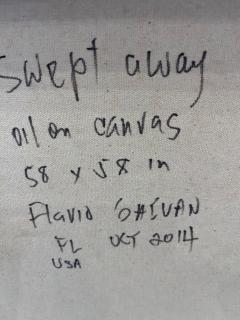 swept away
oil on canvas
58 x 58 in
Flavio GALVAN
FL OCT 2014
USA